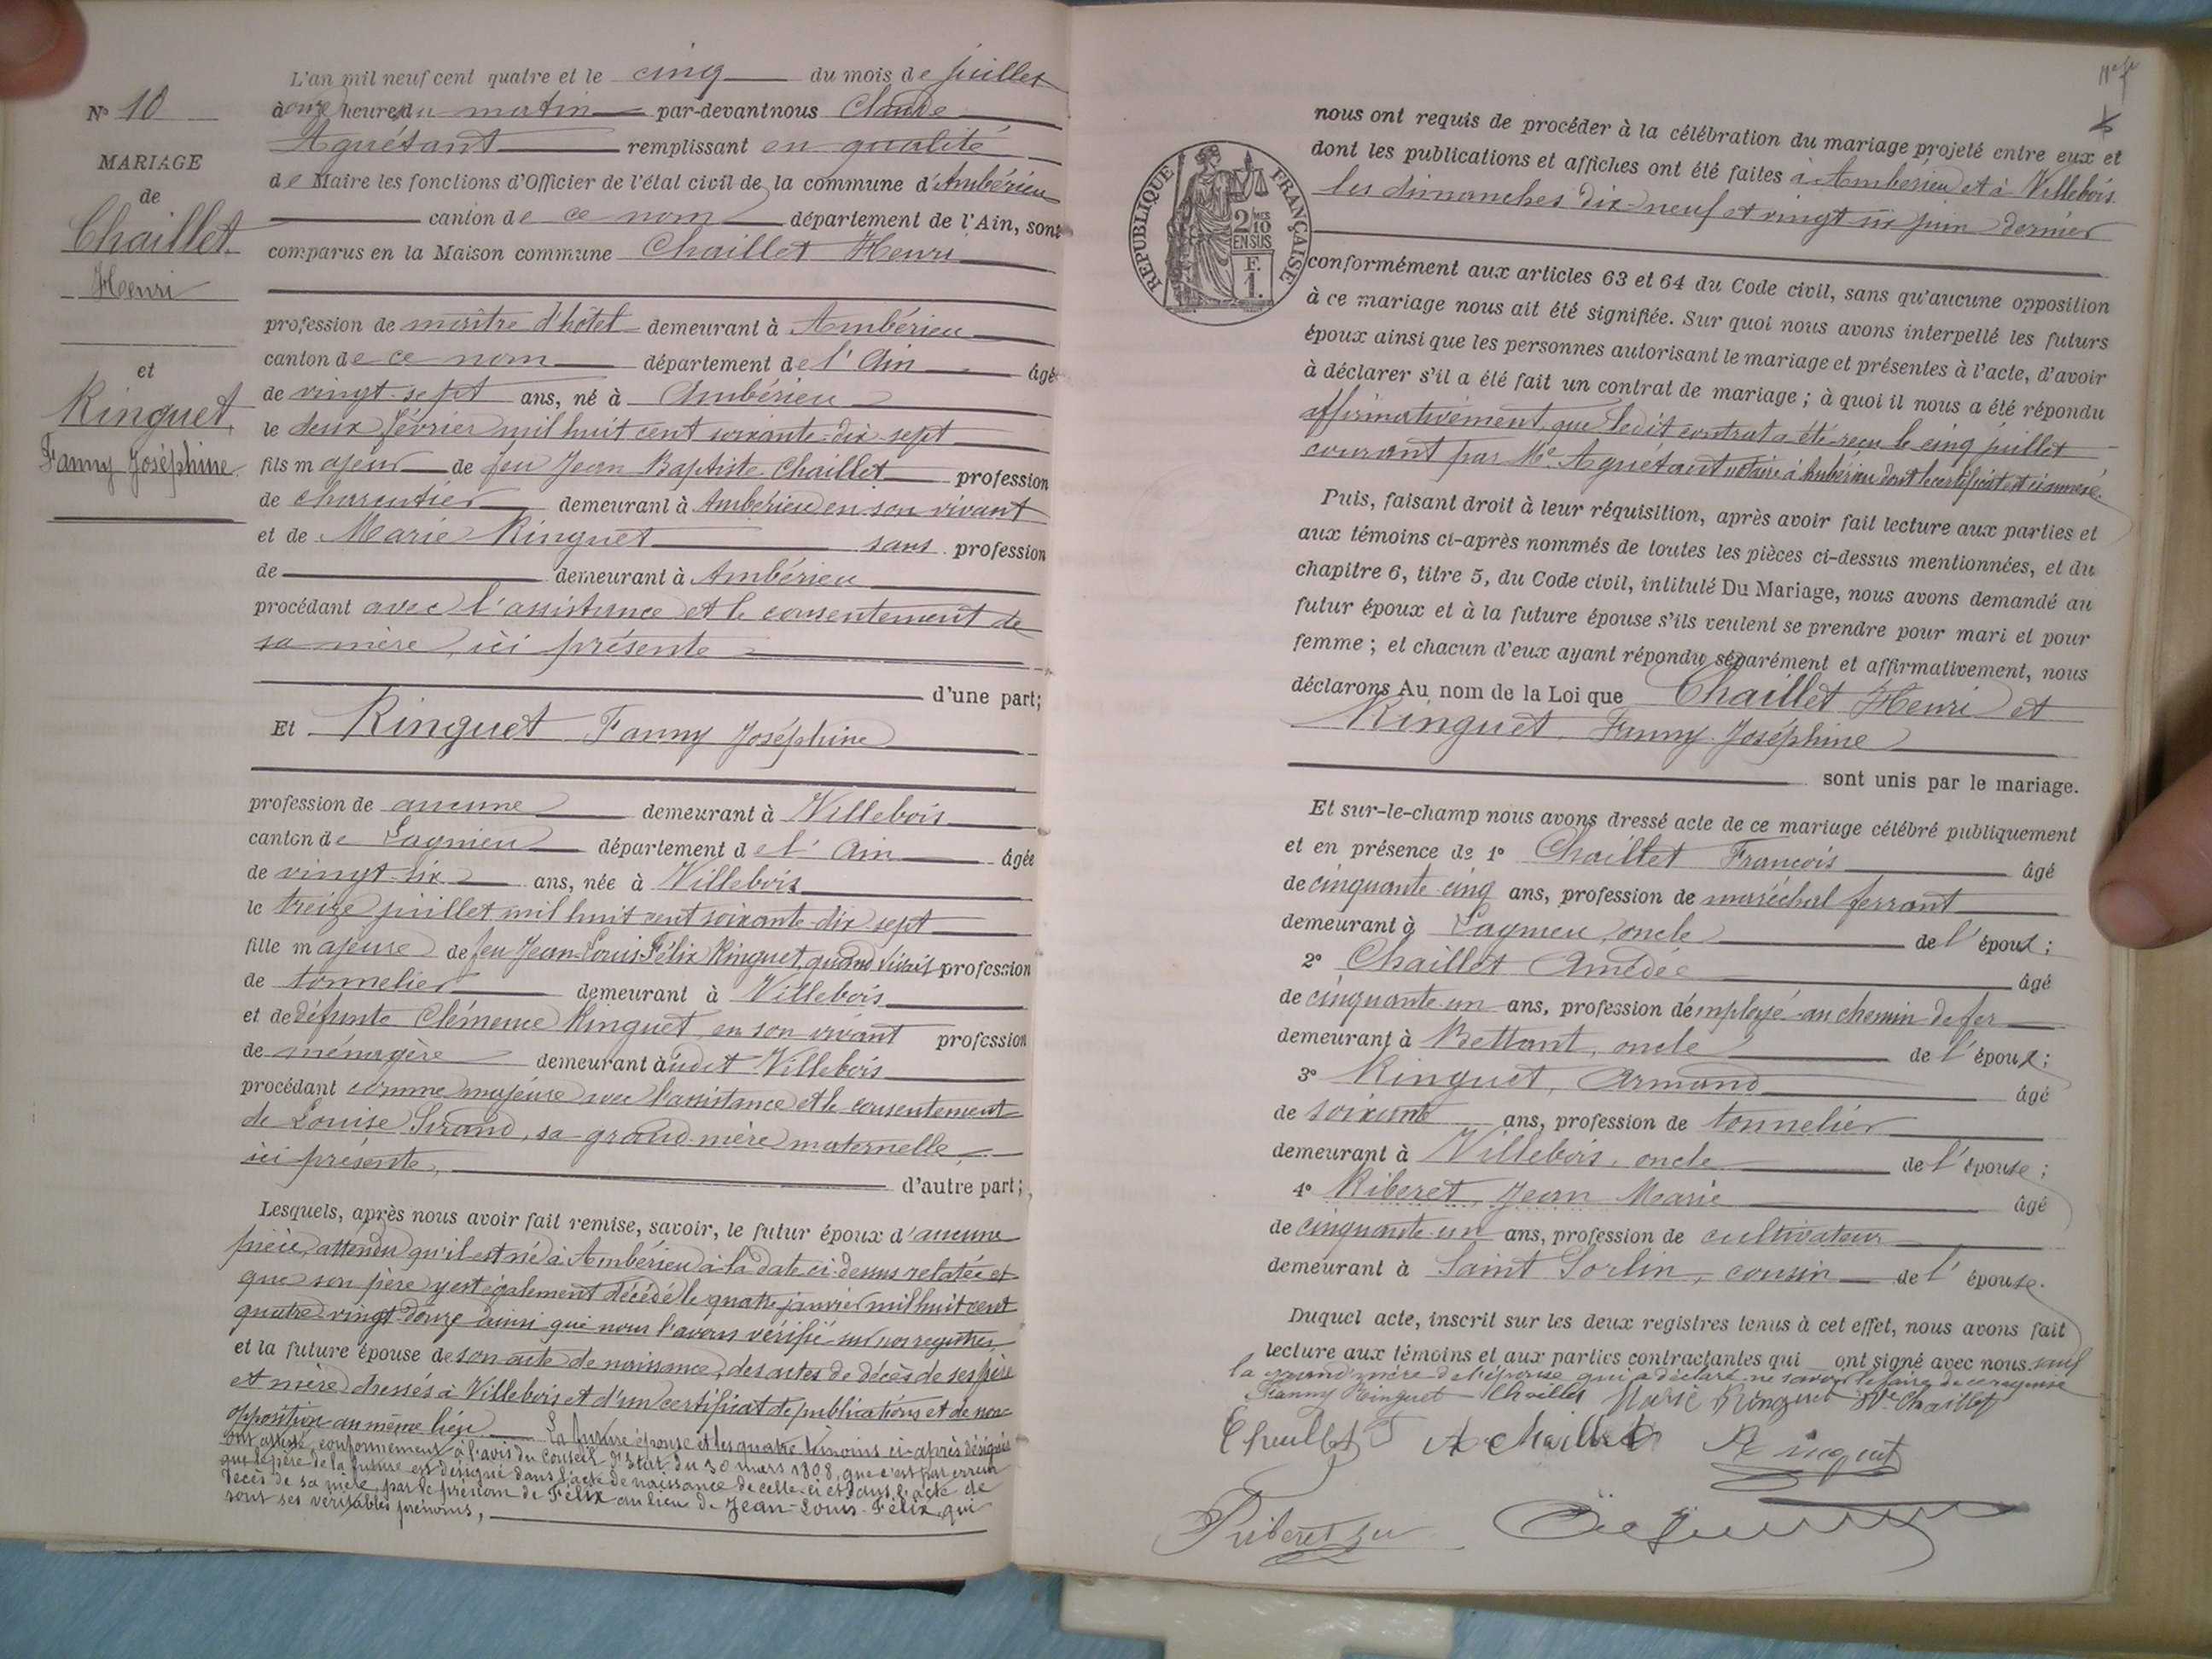 L'an mil neuf cent quatre et le cinq du mois de juillet
N° 10
à onze heures du matin par-devant nous Claude
Aguétant remplissant en qualité
MARIAGE
de Maire les fonctions d'Officier de l'état civil de la commune d'Ambérieu
de
canton de ce nom département de l'Ain, sont
Chaillet
comparus en la Maison commune Chaillet Henri
Henri
profession de maître d'hôtel demeurant à Ambérieu
canton de ce nom département de l'Ain âgé
et
de vingt-sept ans, né à Ambérieu
Ringuet
le deux février mil huit cent soixante-dix-sept
Fanny Joséphine
fils majeur de feu Jean Baptiste Chaillet profession
de charcutier demeurant à Ambérieu en son vivant
et de Marie Ringuet sans profession
de demeurant à Ambérieu
procédant avec l'assistance et le consentement de
sa mère, ici présente
d'une part;
Et Ringuet Fanny Joséphine
profession de aucune demeurant à Villebois
canton de Lagnieu département de l'Ain âgée
de vingt-six ans, née à Villebois
le treize juillet mil huit cent soixante-dix-sept
fille majeure de feu Jean-Louis Félix Ringuet, quand vivait profession
de tonnelier demeurant à Villebois
et de défunte Clémence Ringuet en son vivant profession
de ménagère demeurant audit Villebois
procédant comme majeure avec l'assistance et le consentement
de Louise Sirand, sa grand-mère maternelle,
ici présente, d'autre part;
Lesquels, après nous avoir fait remise, savoir, le futur époux d'aucune
pièce, attendu qu'il est né à Ambérieu à la date ci-dessus relatée et
que son père y est également décédé le quatre janvier mil huit cent
quatre-vingt-douze ainsi que nous l'avons vérifié sur nos registres
et la future épouse de son acte de naissance, des actes de décès de ses père
et mère dressés à Villebois et d'un certificat de publications et de non-
opposition au même lieu La future épouse et les quatre témoins ci-après désignés
ont attesté, conformément à l'avis du Conseil d'Etat du 30 mars 1808, que c'est par erreur
que le père de la future est désigné dans l'acte de naissance de celle-ci et dans l'acte de
décès de sa mère, par le prénom de Félix au lieu de Jean-Louis-Félix, qui
sont ses véritables prénoms,
nous ont requis de procéder à la célébration du mariage projeté entre eux et
dont les publications et affiches ont été faites à Ambérieu et à Villebois
les dimanches dix-neuf et vingt six juin dernier
RÉPUBLIQUE FRANÇAISE
2/10 EN SUS
F. 1.
conformément aux articles 63 et 64 du Code civil, sans qu'aucune opposition
à ce mariage nous ait été signifiée. Sur quoi nous avons interpellé les futurs
époux ainsi que les personnes autorisant le mariage et présentes à l'acte, d'avoir
à déclarer s'il a été fait un contrat de mariage; à quoi il nous a été répondu
affirmativement que ledit contrat a été reçu le cinq juillet
courant par Me Aguétant notaire à Ambérieu dont le certificat est ci annexé.
Puis, faisant droit à leur réquisition, après avoir fait lecture aux parties et
aux témoins ci-après nommés de toutes les pièces ci-dessus mentionnées, et du
chapitre 6, titre 5, du Code civil, intitulé Du Mariage, nous avons demandé au
futur époux et à la future épouse s'ils veulent se prendre pour mari et pour
femme; et chacun d'eux ayant répondu séparément et affirmativement, nous
déclarons Au nom de la Loi que Chaillet Henri et
Ringuet Fanny Joséphine
sont unis par le mariage.
Et sur-le-champ nous avons dressé acte de ce mariage célébré publiquement
et en présence de 1° Chaillet François âgé
de cinquante cinq ans, profession de maréchal ferrant
demeurant à Lagnieu, oncle de l'époux;
2° Chaillet Amédée âgé
de cinquante-un ans, profession d'employé au chemin de fer
demeurant à Bettant, oncle de l'époux;
3° Ringuet, Armand âgé
de soixante ans, profession de tonnelier
demeurant à Villebois, oncle de l'épouse;
4° Riberet, Jean Marie âgé
de cinquante-un ans, profession de cultivateur
demeurant à Saint Sorlin, cousin de l'épouse.
Duquel acte, inscrit sur les deux registres tenus à cet effet, nous avons fait
lecture aux témoins et aux parties contractantes qui ont signé avec nous sauf
la grand'mère de l'épouse qui a déclaré ne savoir le faire de ce requise
Fanny Ringuet Chaillet Marie Ringuet Ve Chaillet
Chaillet F A Chaillet Ringuet
Riberet